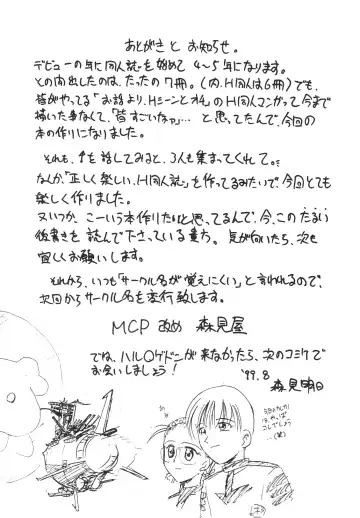 あとがきと お知らせ。
デビューの年に同人誌を始めて 4〜5年になります。
その間出したのは、たったの7冊。(内、H同人は6冊)でも、
皆がやってる「お話より、Hシーンとオチ」のH同人マンガって今まで
描いた事なくて、「皆すごいなァ…」と思ってたんで、今回の
本の作りになりました。
それも、↑を話してみると、3人も集まってくれて。
なんか「正しく楽しい、H同人誌」を作ってるみたいで、今回とても
楽しく作りました。
又いつか、こーいう本作りたいと思ってるんで、今、このたるい
後書きを 読んで下さっている貴方。 気が向いたら、次も
宜しくお願いします。
それから、いつも「サークル名が覚えにくい」と言われるので、
次回からサークル名を変行致します。
MCP 改め 森見屋
では、ハルQゲドンが来なかったら、次のコミケで
お会いしましょう!
'99.8
森見明日